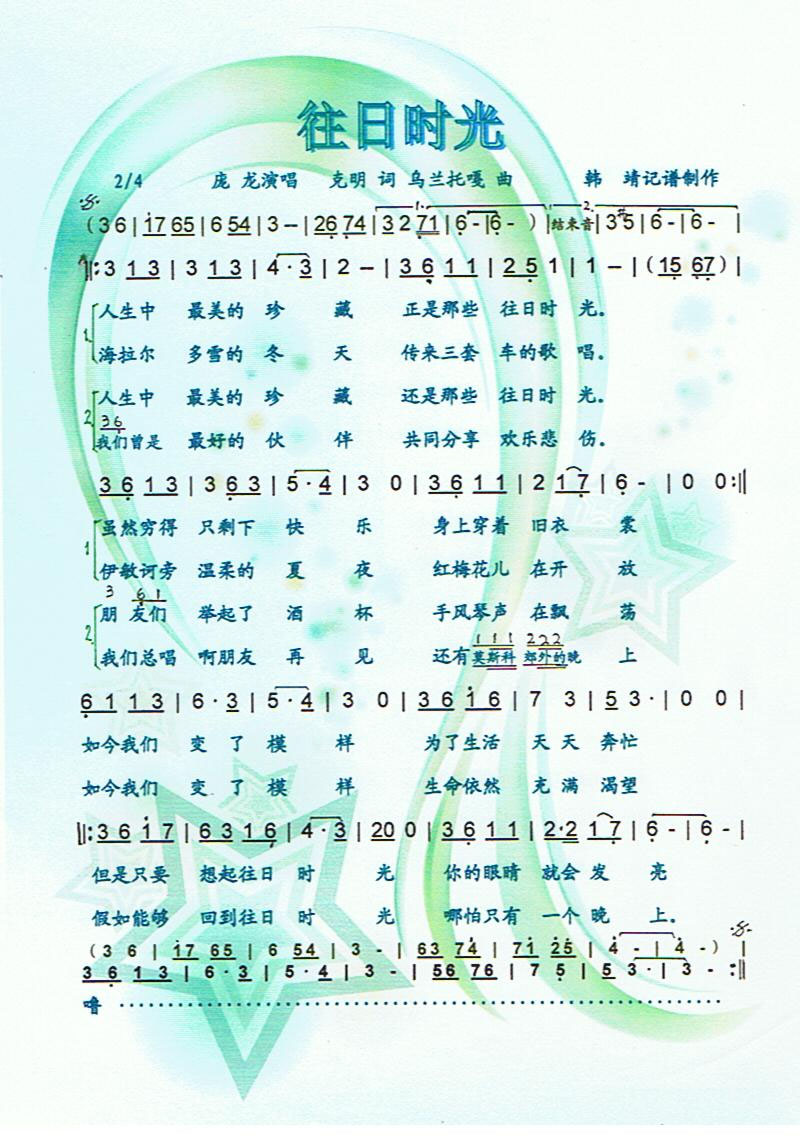 往日时光
2/4 庞 龙演唱 克明 词 乌兰托嘎 曲 韩 靖记谱制作
(3 6 | 17 65 | 6 54 | 3 – | 26 74 | 3 2 71 | 6 - | 6 - ) | 结束音 | 3 #5 | 6 - | 6 - |
‖: 3 1 3 | 3 1 3 | 4 · 3 | 2 – | 3 6 1 1 | 2 5 1 | 1 – | (15 67) |
1. 人生中 最美的 珍 藏 正是那些 往日时 光。
海拉尔 多雪的 冬 天 传来三套 车的歌 唱。
2. 人生中 最美的 珍 藏 还是那些 往日时 光。
36
我们曾是 最好的 伙 伴 共同分享 欢乐悲 伤。
3 6 1 3 | 3 6 3 | 5 · 4 | 3 0 | 3 6 1 1 | 2 1 7 | 6 - | 0 0 :‖
1 虽然穷得 只剩下 快 乐 身上穿着 旧衣 裳
伊敏诃旁 温柔的 夏 夜 红梅花儿 在开 放
3 6 1
2. 朋 友们 举起了 酒 杯 手风琴声 在飘 荡
1 1 1 2 2 2
我们总唱 啊朋友 再 见 还有莫斯科 郊外的晚 上
6 1 1 3 | 6 · 3 | 5 · 4 | 3 0 | 3 6 1 6 | 7 3 | 5 3 · | 0 0 |
如今我们 变 了 模 样 为了生活 天 天 奔忙
如今我们 变 了 模 样 生命依然 充 满 渴望
‖: 3 6 1 7 | 6 3 1 6 | 4 · 3 | 20 0 | 3 6 1 1 | 2·2 1 7 | 6 - | 6 - |
但是只要 想起往日 时 光 你的眼睛 就会 发 亮
假如能够 回到往日 时 光 哪怕只有 一个 晚 上。
(3 6 | 17 65 | 6 54 | 3 - | 63 74 | 71 25 | 4 - | 4 - ) |
3 6 1 3 | 6 · 3 | 5 · 4 | 3 - | 56 76 | 7 5 | 5 3 · | 3 - :‖
噜 ………………………………